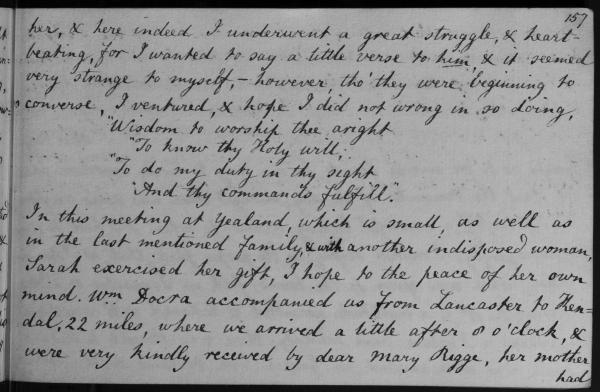 157
her, & here indeed I underwent a great struggle, & heart-
beating, for I wanted to say a little verse to him, & it seemed
very strange to myself, – however, tho' they were beginning to
converse, I ventured, & hope I did not wrong in so doing,
"Wisdom to worship thee aright
"To know thy Holy will,
"To do my duty in thy sight
"And thy commands fulfill".
In this meeting at Yealand, which is small, as well as
in the last mentioned family, & with another indisposed woman,
Sarah exercised her gift, I hope to the peace of her own
mind. Wm Docra accompanied us from Lancaster to Ken-
dal, 22 miles, where we arrived a little after 8 o'clock, &
were very kindly received by dear Mary Rigge, her mother
had